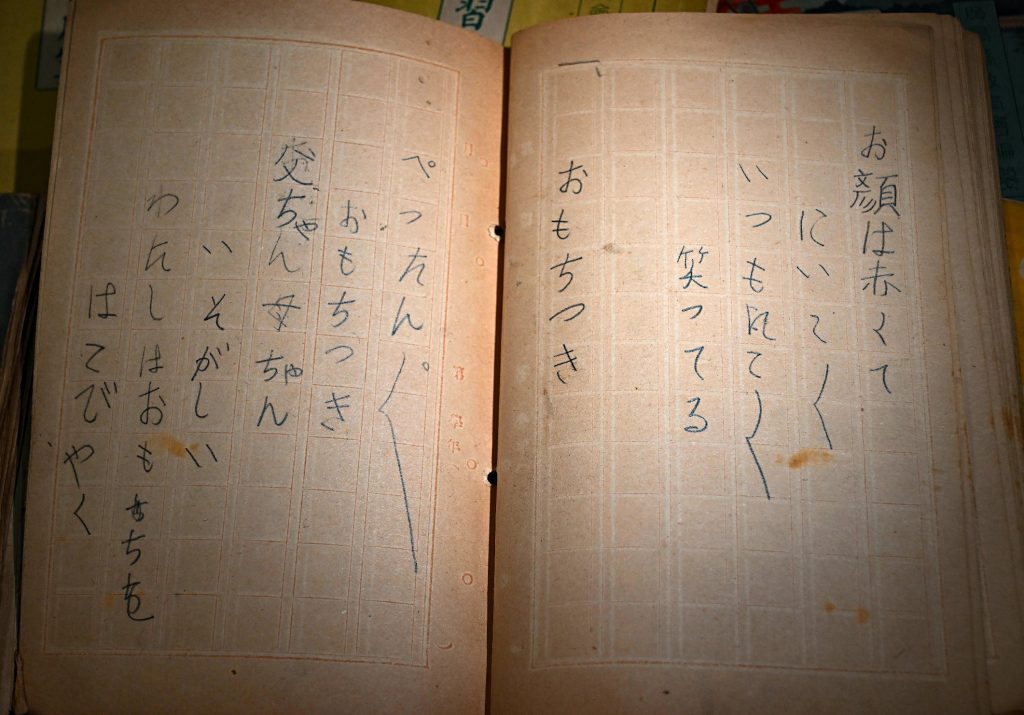 習
お顔は赤くて
にいて〳〵
いつもれて〳〵
笑ってる
おもちつき
ぺったん〳〵
おもちつき
父ちゃん母ちゃん
いそがしい
わたしはおもちを
はこびやく